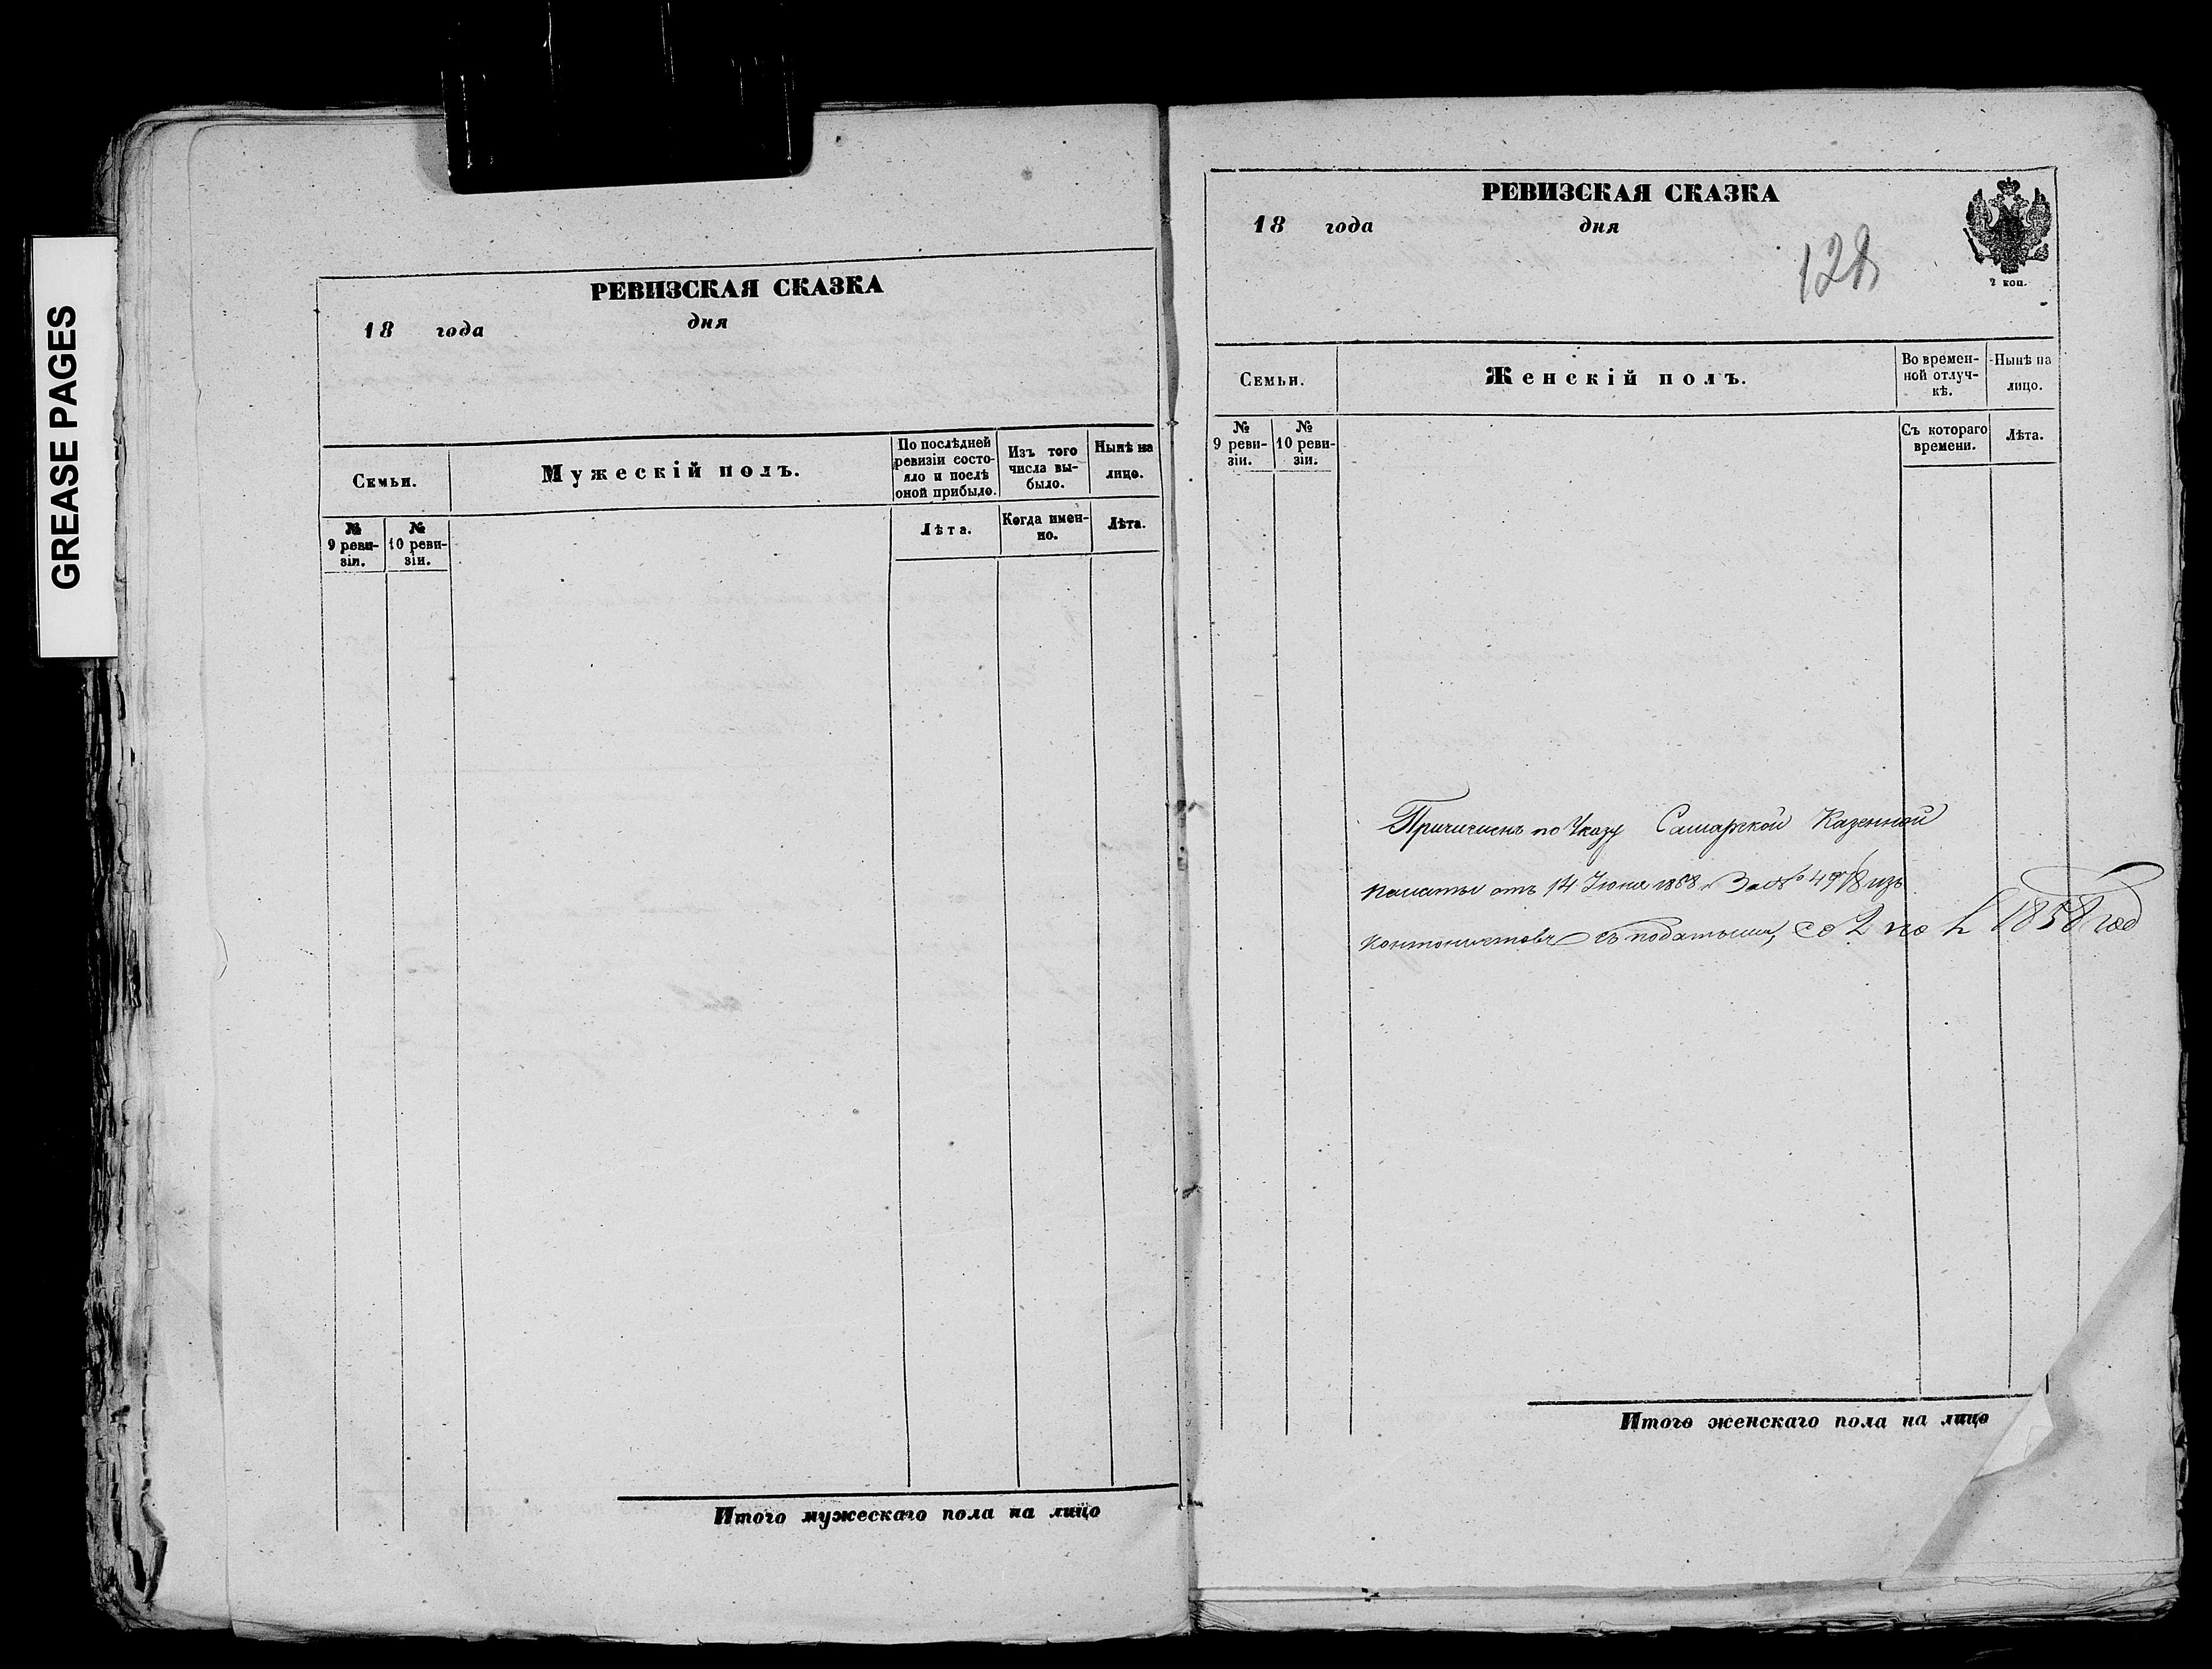 GREASE PAGES
РЕВИЗСКАЯ СКАЗКА
18 года дня
Семьи.
Мужескій полъ.
По послѣдней ревизіи состояло и послѣ оной прибыло.
Изъ того числа выбыло.
Нынѣ на лицо.
№ 9 ревизіи.
№ 10 ревизіи.
Лѣта.
Когда именно.
Лѣта.
Итого мужескаго пола на лицо
РЕВИЗСКАЯ СКАЗКА
18 года дня
128
2 коп.
Семьи.
Женскій полъ.
Во временной отлучкѣ.
Нынѣ на лицо.
№ 9 ревизіи.
№ 10 ревизіи.
Съ котораго времени.
Лѣта.
Причисленъ по Указу Самарской Казенной
Палаты отъ 14 Іюня 1858 г За № 4978 изъ
Контонистовъ съ податьми, со 2 по 1858 год
Итого женскаго пола на лицо